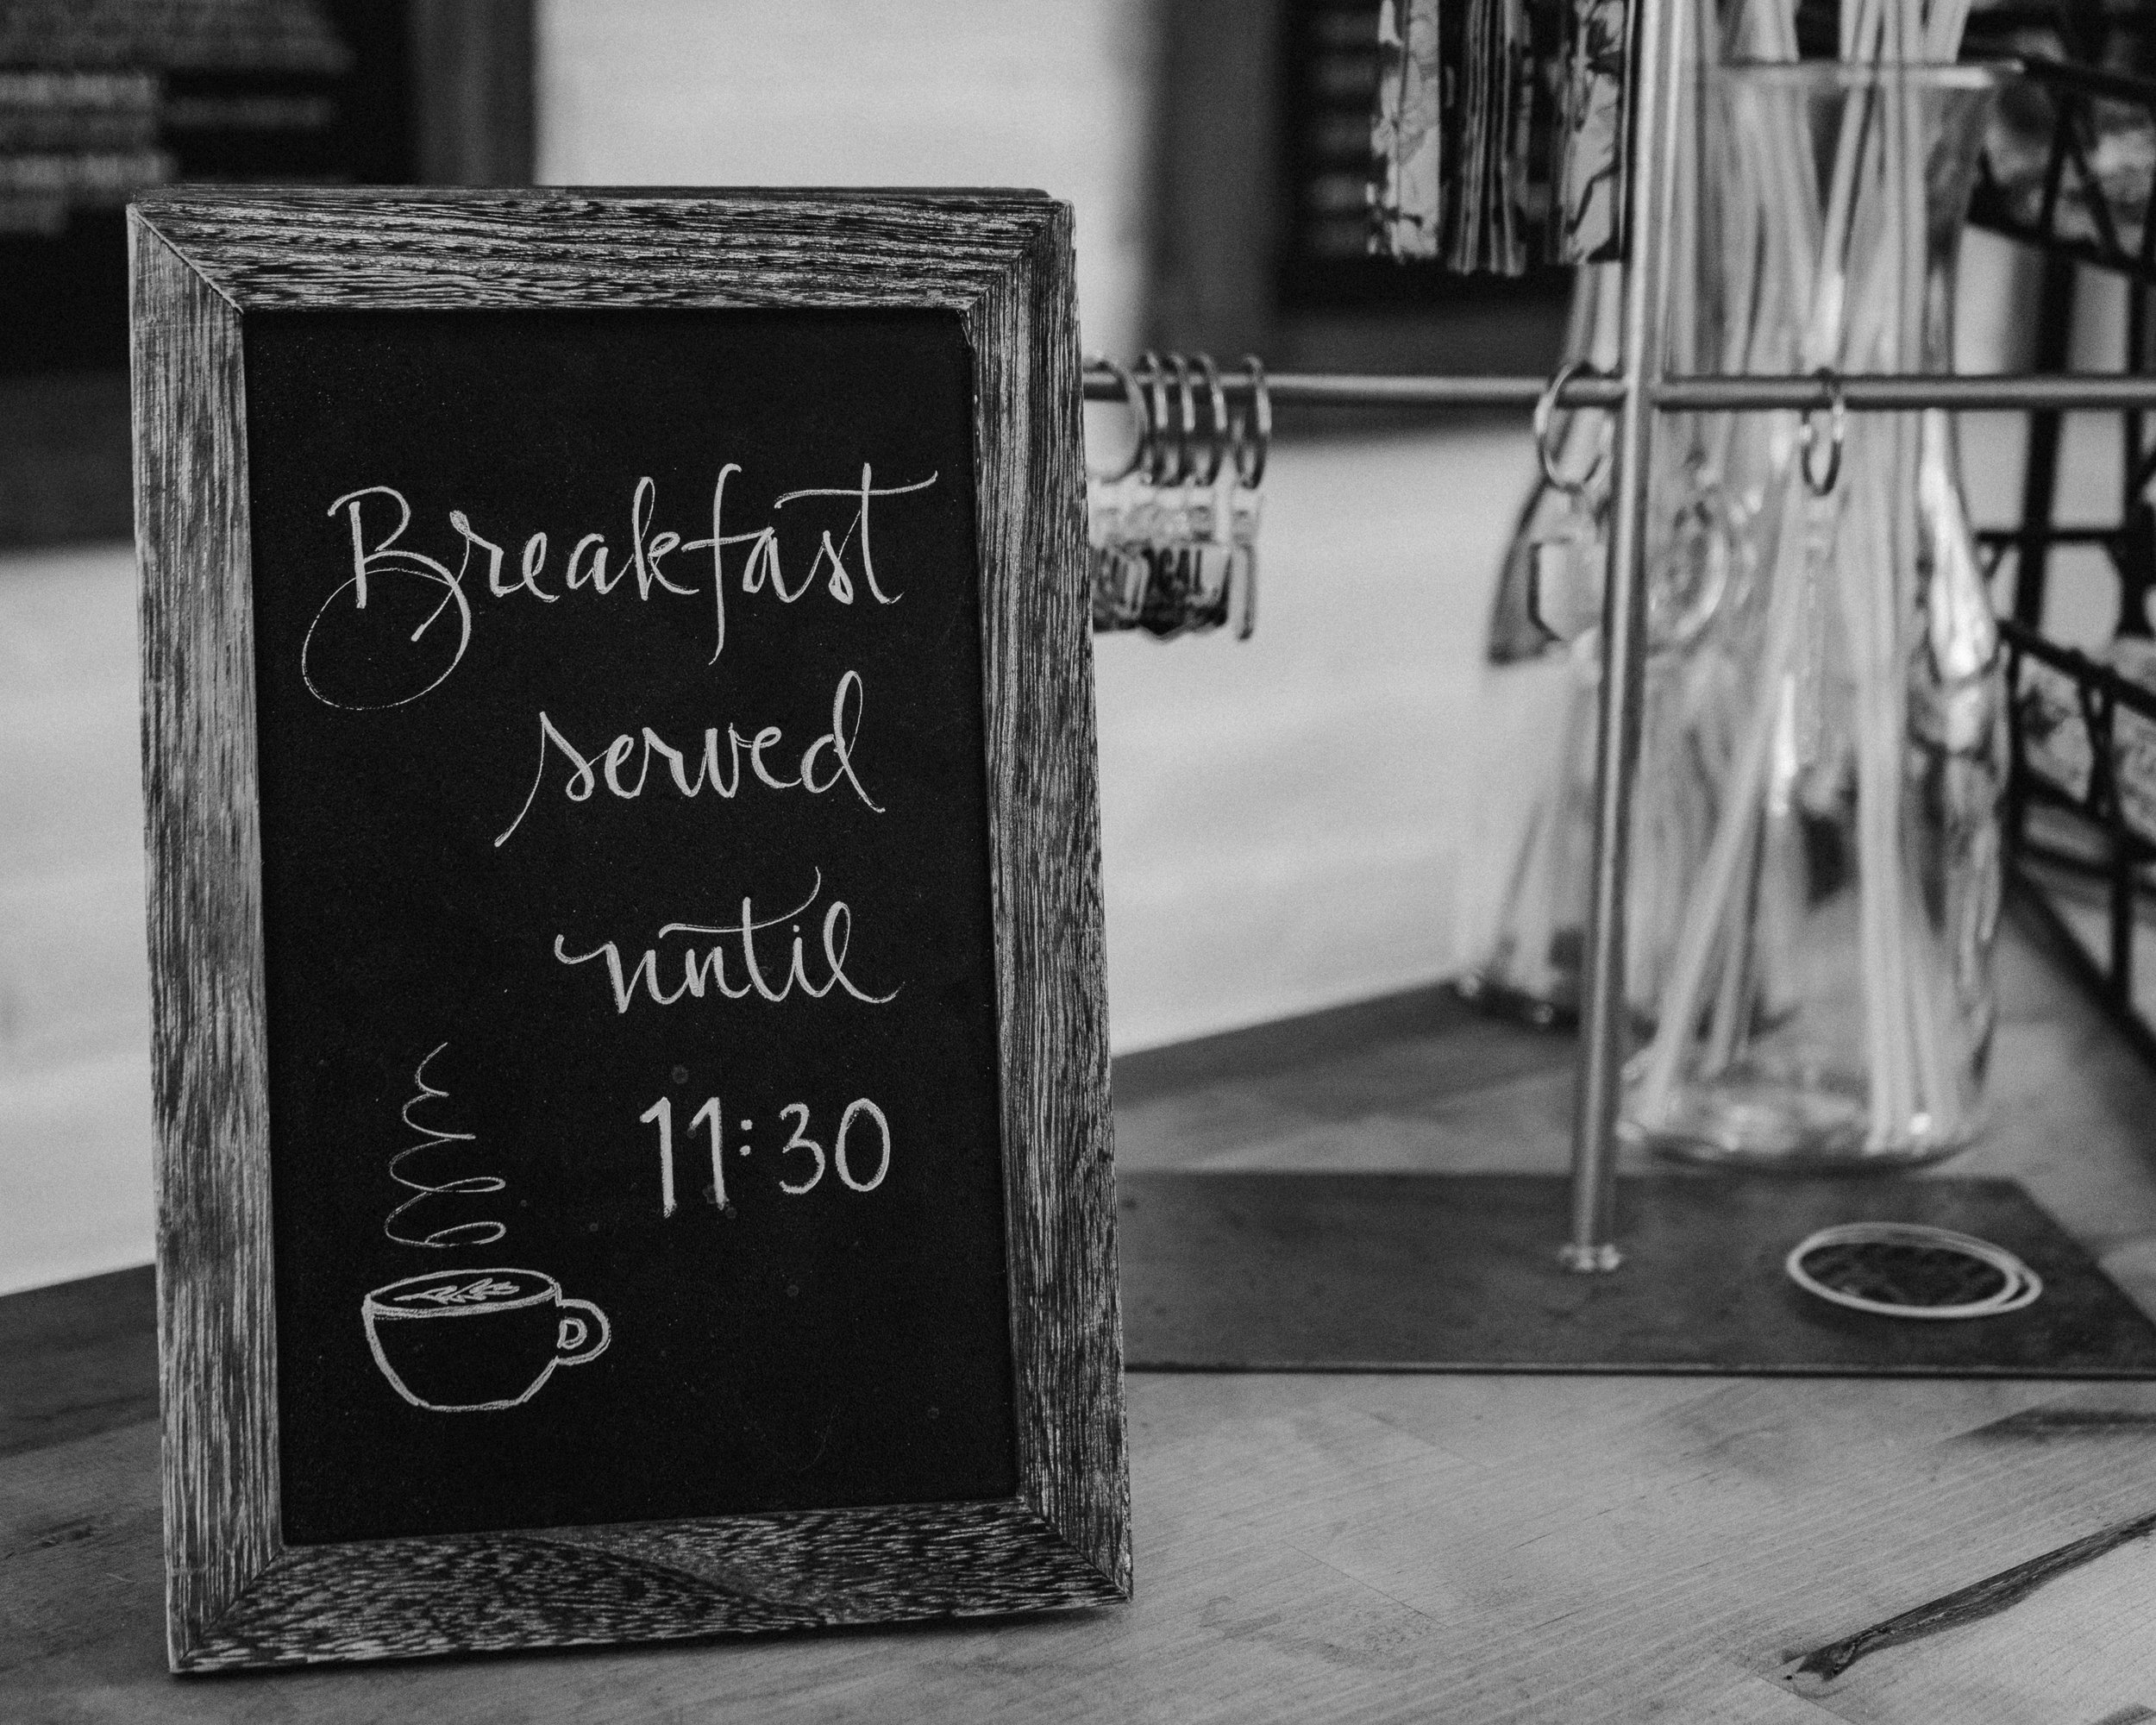 Breakfast
served
until
11:30